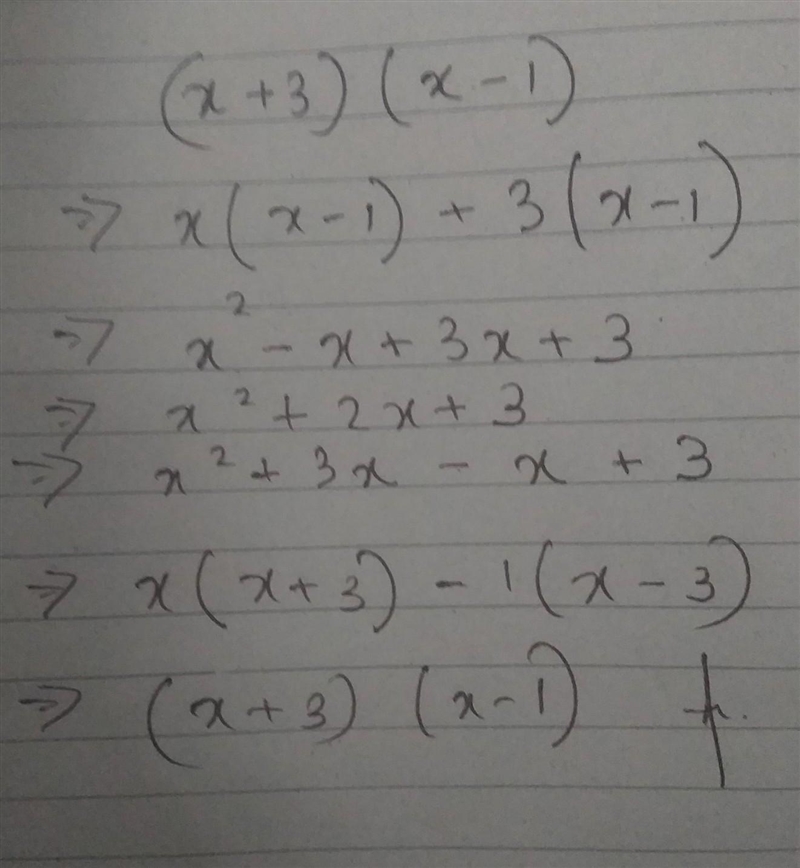 (x+3) (x-1)
⇒ x(x-1) + 3(x-1)
⇒ x² - x + 3x + 3
⇒ x² + 2x + 3
⇒ x² + 3x - x + 3
⇒ x(x+3) - 1(x-3)
⇒ (x+3) (x-1)